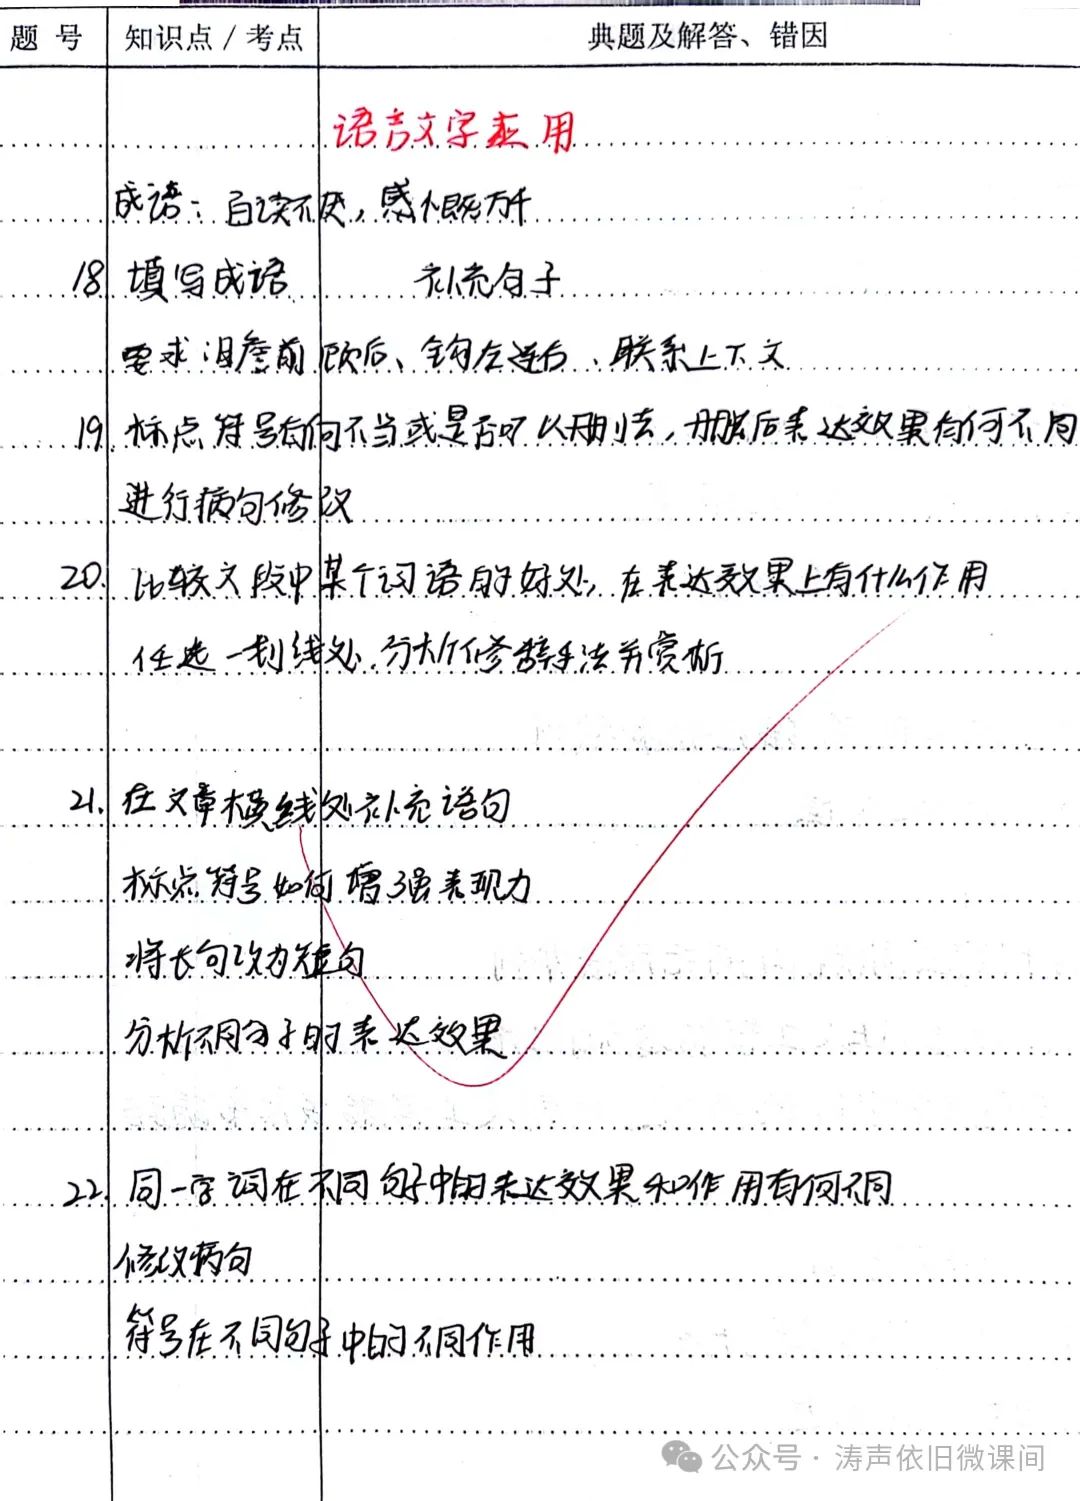 题号 知识点/考点 典题及解答、错因
语言文字应用
成语:百读不厌,感慨万千
18 填写成语 补充句子
要求:瞻前顾后、钩左连右、联系上下文
19. 标点符号有何不当或是否可以删去,删除后表达效果有何不同
进行病句修改
20. 比较文段中某个词语的好处,在表达效果上有什么作用
任选一划线处,分析修辞手法并赏析
21. 在文章横线处补充语句
标点符号如何增强表现力
将长句改为短句
分析不同句子的表达效果
22. 同一字词在不同句子中的表达效果和作用有何不同
修改病句
符号在不同句子中的不同作用
公众号·涛声依旧微课间